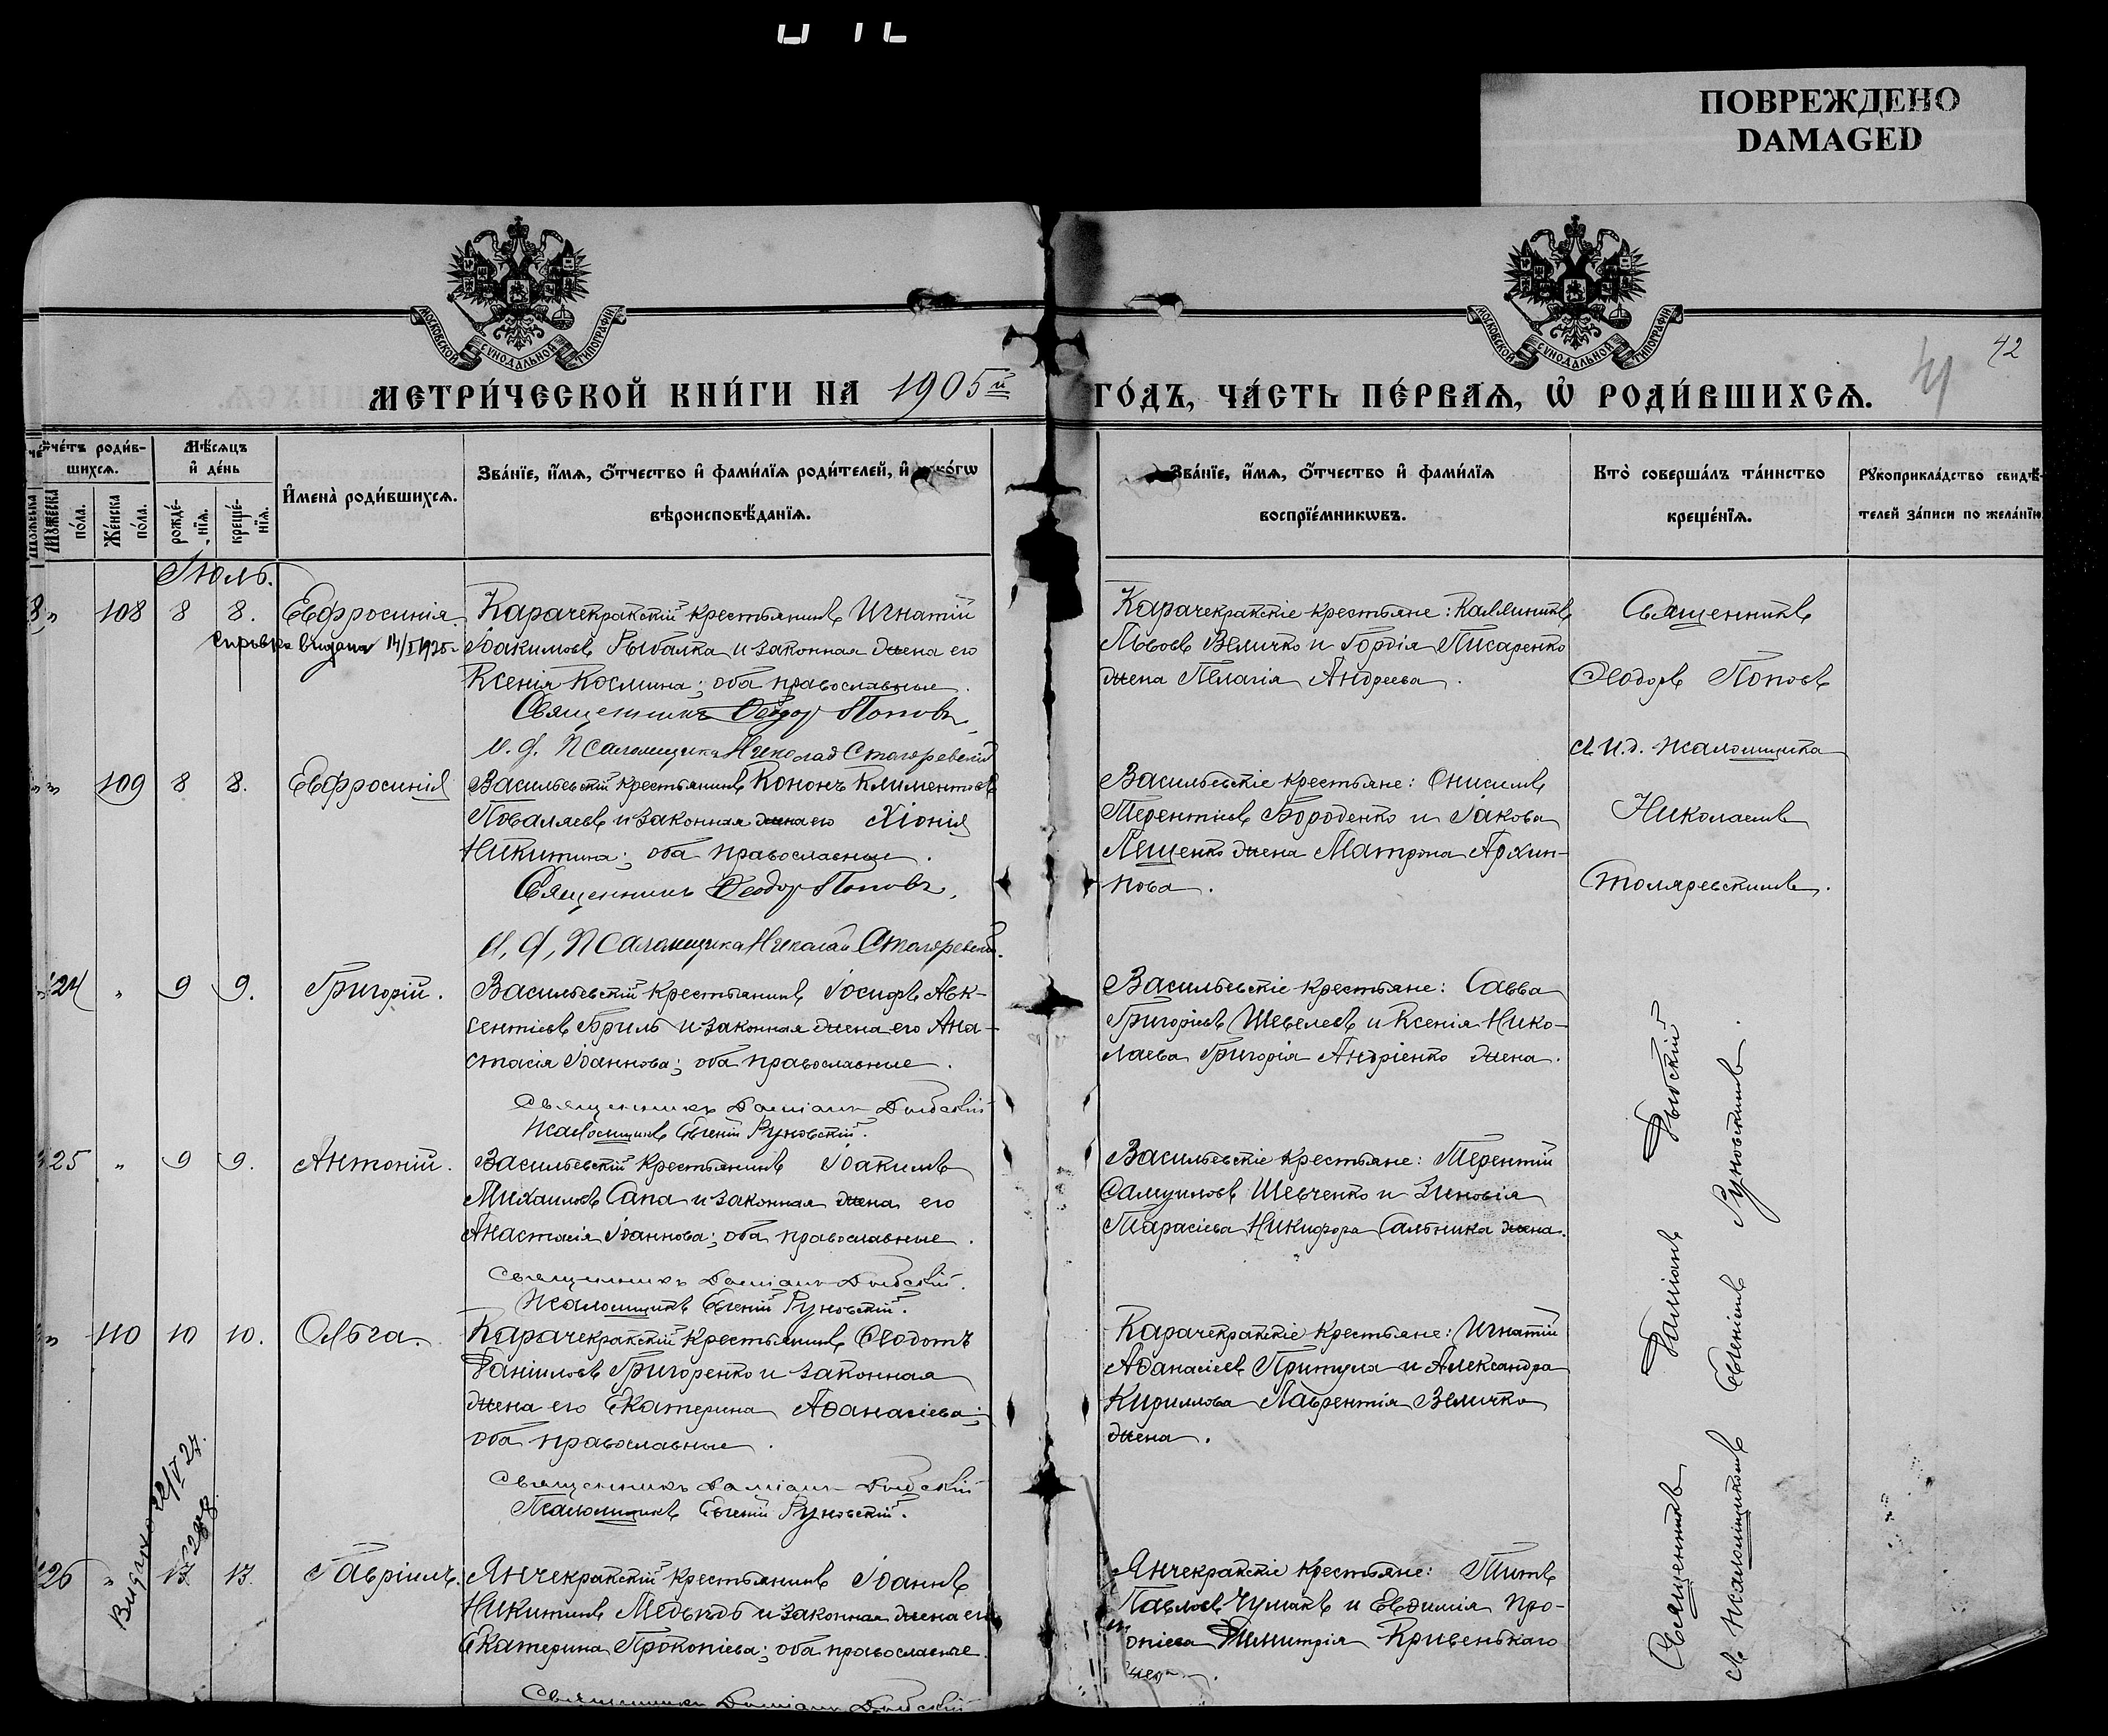 ПОВРЕЖДЕНО
DAMAGED
МОСКОВСКОЙ СУНОДАЛЬНОЙ ТИПОГРАФІИ
МОСКОВСКОЙ СУНОДАЛЬНОЙ ТИПОГРАФІИ
42
41
МЕТРИ́ЧЕСКОЙ КНИ́ГИ НА 1905й ГО́ДЪ, ЧА́СТЬ ПЕ́РВАѦ, Ѡ҆ РОДИ́ВШИХСѦ.
Сче́тъ роди́в-
шихся.
Мѣ́сяцъ
и҆ де́нь
Мꙋжеска по́ла.
Же́нска по́ла.
рожде́-нїя.
креще́-нїя.
И҆мена̀ роди́вшихся.
Зва́нїе, и҆́мя, ѻ҆́тчество и҆ фами́лїя роди́телей, и҆ како́гѡ
вѣроисповѣ́данїя.
Зва́нїе, и҆́мя, ѻ҆́тчество и҆ фами́лїя
воспрїе́мникѡвъ.
Кто̀ соверша́лъ та́инство
креще́нїя.
Рꙋкоприкла́дство свидѣ́-
телей за́писи по жела́нїю
Іюль.
" 108 8 8. Евфросинія.
Справка выдана 14/I 1925г
Карачекракскій крестьянинъ Игнатій
Іоакимовъ Рыбалка и законная жена его
Ксенія Космина; оба православные.
Священникъ Ѳеодор Поповъ,
И. д. Псаломщика Николай Столяревскій
Карачекракскіе крестьяне: Каллиникъ
Львовъ Величко и Гордія Писаренко
жена Пелагія Андреева.
Священникъ
Ѳеодоръ Поповъ
съ и. д. псаломщика
Николаемъ
Столяревскимъ.
" 109 8 8. Евфросинія
Васильевскій крестьянинъ Кононъ Климентовъ
Поваляевъ и законная жена его Хіонія
Никитина; оба православные.
Священникъ Ѳеодор Поповъ,
И. д. Псаломщика Николай Столяревскій.
Васильевскіе крестьяне: Онисимъ
Терентіевъ Бороденко и Іакова
Лещенко жена Матрона Архип-
пова.
124 " 9 9. Григорій.
Васильевскій крестьянинъ Іосифъ Авк-
сентіевъ Бриль и законная жена его Ана-
стасія Іоаннова; оба православные.
Священникъ Даміанъ
Псаломщикъ Евгеній Руновскій.
Васильевскіе крестьяне: Савва
Григоріевъ Шевелевъ и Ксенія Нико-
лаева Григорія Андріенко жена.
125 " 9 9. Антоній.
Васильевскій крестьянинъ Іоакимъ
Михаиловъ Сапа и законная жена его
Анастасія Іоаннова; оба православные.
Священникъ Даміанъ
Псаломщикъ Евгеній Руновскій.
Васильевскіе крестьяне: Терентій
Самуиловъ Шевченко и Зиновія
Тарасіева Никифора Сальника жена.
" 110 10 10. Ольга.
Карачекракскій крестьянинъ Ѳеодотъ
Даніиловъ Григоренко и законная
жена его Екатерина Аѳанасіева;
оба православные.
Священникъ Даміанъ
Псаломщикъ Евгеній Руновскій.
Карачекракскіе крестьяне: Игнатій
Аѳанасіевъ Притула и Александра
Кириллова Лаврентія Величко
жена.
22/V 27.
126 " 13 13. Гавріилъ.
Янчекракскій крестьянинъ Іоаннъ
Никитинъ и законная жена его
Екатерина Прокопіева; оба православные.
Священникъ Даміанъ
Янчекракскіе крестьяне: Титъ
Павловъ Чумакъ и Евдокія Про-
Димитрія Кривенькаго
жена.
Священникъ Даміанъ
съ псаломщикомъ Евгеніемъ Руновскимъ.